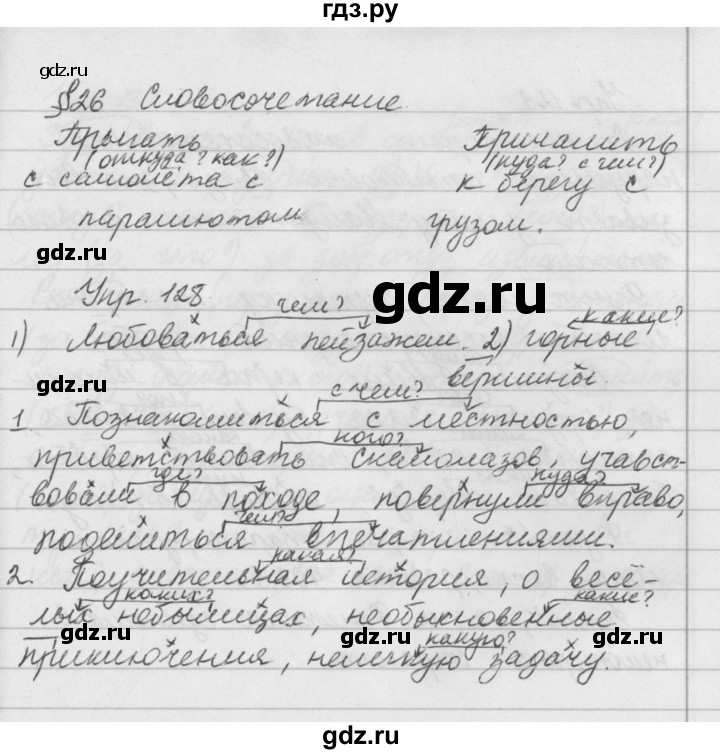 гдз.ру
gdz.ru
§26 Словосочетание.
Прыгать Причалить
(откуда? как?) (куда? с чем?)
с самолёта с к берегу с
парашютом грузом.
gdz.ru gdz.ru
Упр. 128
чем? какие?
1) Любоваться пейзажем. 2) горные
gdz.ru вершины.
с чем?
1 Познакомиться с местностью,
кого?
приветствовать скалолазов, участ-
где? куда?
вовали в походе, повернули вправо,
чем?
поделиться впечатлениями.
какая?
2. Поучительная история, о весё-
каких? какие?
лых небылицах, необыкновенные
gdz.ru какую? gdz.ru gdz.ru
приключения, нелёгкую задачу.
gdz.ru